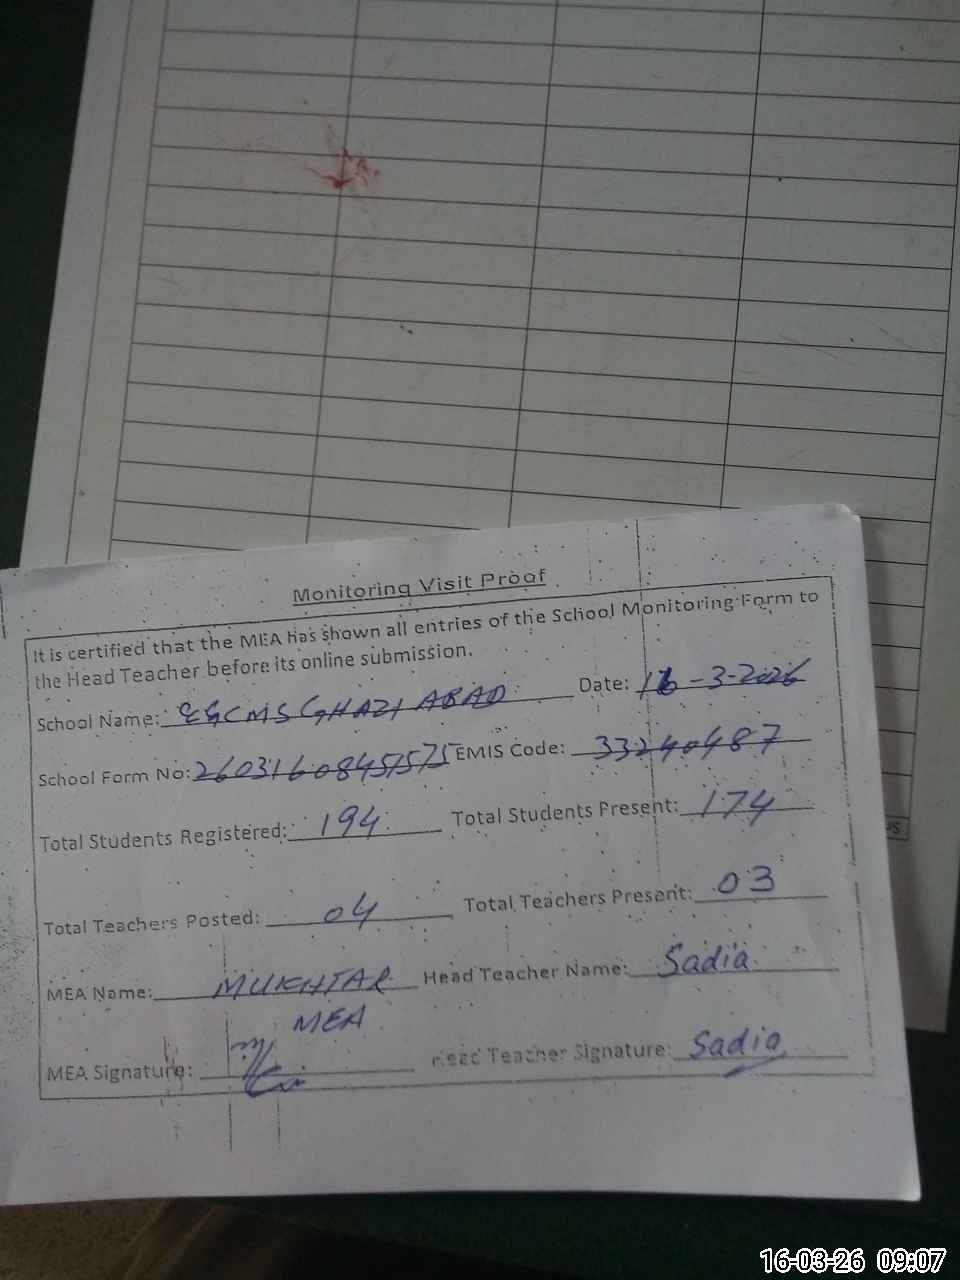 Monitoring Visit Proof
It is certified that the MEA has shown all entries of the School Monitoring Form to
the Head Teacher before its online submission.
School Name: GGCMS GHAZI ABAD Date: 16-3-2026
School Form No: 26031608451575 EMIS Code: 33240487
Total Students Registered: 194 Total Students Present: 174
Total Teachers Posted: 04 Total Teachers Present: 03
MEA Name: MUKHTAR Head Teacher Name: Sadia
MEA
MEA Signature: Head Teacher Signature: Sadia
16-03-26 09:07